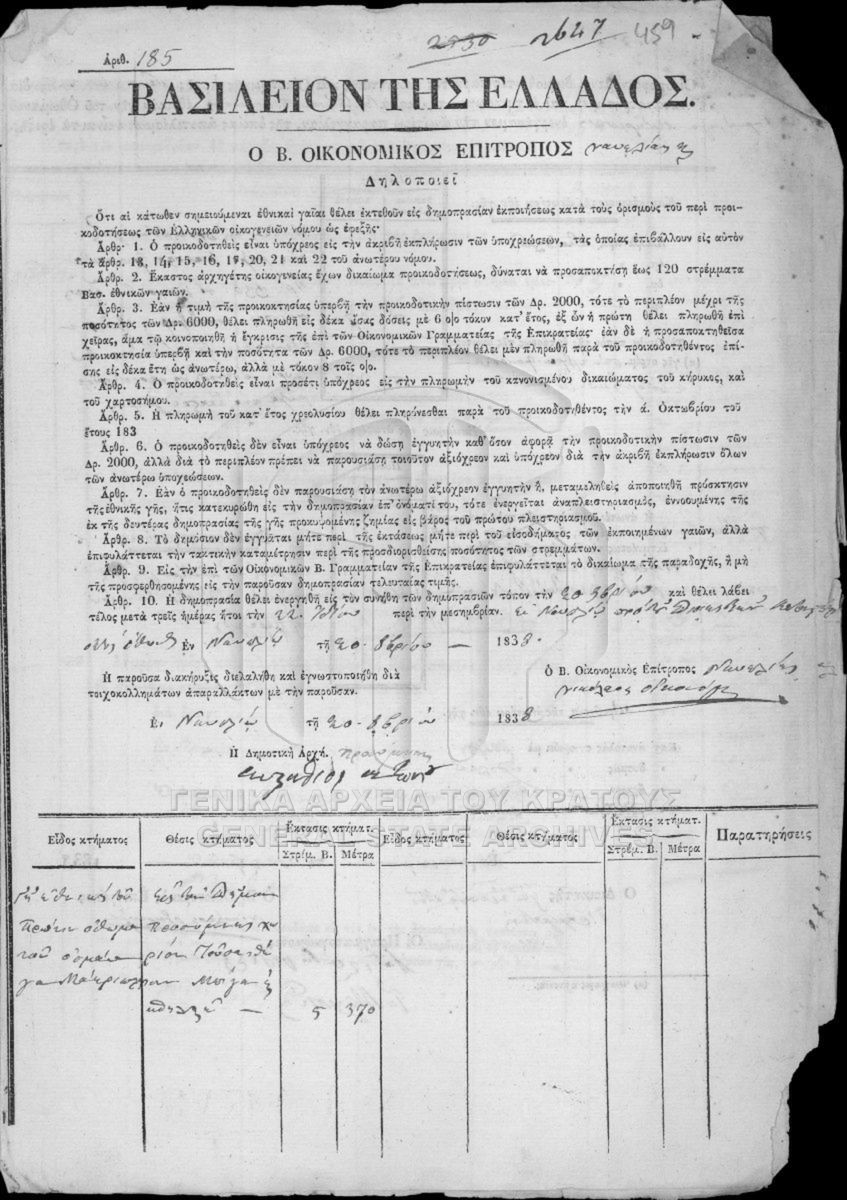 2930 2647 459
Ἀριθ. 185
ΒΑΣΙΛΕΙΟΝ ΤΗΣ ΕΛΛΑΔΟΣ.
Ο Β. ΟΙΚΟΝΟΜΙΚΟΣ ΕΠΙΤΡΟΠΟΣ Ναυπλίας
Δηλοποιεῖ
Ὅτι αἱ κάτωθεν σημειούμεναι ἐθνικαὶ γαῖαι θέλει ἐκτεθοῦν εἰς δημοπρασίαν ἐκποιήσεως κατὰ τοὺς ὁρισμοὺς τοῦ περὶ προι-
κοδοτήσεως τῶν Ἑλληνικῶν οἰκογενειῶν νόμου ὡς ἐφεξῆς·
Ἄρθρ· 1. Ὁ προικοδοτηθεὶς εἶναι ὑπόχρεος εἰς τὴν ἀκριβῆ ἐκπλήρωσιν τῶν ὑποχρεώσεων, τὰς ὁποίας ἐπιβάλλουν εἰς αὐτὸν
τὰ ἄρθρ. 13, 14, 15, 16, 17, 20, 21 καὶ 22 τοῦ ἀνωτέρω νόμου.
Ἄρθρ. 2. Ἕκαστος ἀρχηγέτης οἰκογενείας ἔχων δικαίωμα προικοδοτήσεως, δύναται νὰ προσαποκτήσῃ ἕως 120 στρέμματα
Βασ. ἐθνικῶν γαιῶν.
Ἄρθρ. 3. Ἐὰν ἡ τιμὴ τῆς προικοκτησίας ὑπερβῇ τὴν προικοδοτικὴν πίστωσιν τῶν Δρ. 2000, τότε τὸ περιπλέον μέχρι τῆς
ποσότητος τῶν Δρ. 6000, θέλει πληρωθῆ εἰς δέκα ἴσας δόσεις μὲ 6 ο)ο τόκον κατ' ἔτος, ἐξ ὧν ἡ πρώτη θέλει πληρωθῆ ἐπὶ
χεῖρας, ἅμα τῷ κοινοποιηθῇ ἡ ἔγκρισις τῆς ἐπὶ τῶν Οἰκονομικῶν Γραμματείας τῆς Ἐπικρατείας· ἐὰν δὲ ἡ προσαποκτηθεῖσα
προικοκτησία ὑπερβῇ καὶ τὴν ποσότητα τῶν Δρ. 6000, τότε τὸ περιπλέον θέλει μὲν πληρωθῆ παρὰ τοῦ προικοδοτηθέντος ἐπί-
σης εἰς δέκα ἔτη ὡς ἀνωτέρω, ἀλλὰ μὲ τόκον 8 τοῖς ο)ο.
Ἄρθρ. 4. Ὁ προικοδοτηθεὶς εἶναι προσέτι ὑπόχρεος εἰς τὴν πληρωμὴν τοῦ κανονισμένου δικαιώματος τοῦ κήρυκος, καὶ
τοῦ χαρτοσήμου.
Ἄρθρ. 5. Ἡ πληρωμὴ τοῦ κατ' ἔτος χρεολυσίου θέλει πληρόνεσθαι παρὰ τοῦ προικοδοτηθέντος τὴν ά. Ὀκτωβρίου τοῦ
ἔτους 183
Ἄρθρ. 6. Ὁ προικοδοτηθεὶς δὲν εἶναι ὑπόχρεος νὰ δώσῃ ἐγγυητὴν καθ' ὅσον ἀφορᾷ τὴν προικοδοτικὴν πίστωσιν τῶν
Δρ. 2000, ἀλλὰ διὰ τὸ περιπλέον πρέπει νὰ παρουσιάσῃ τοιοῦτον ἀξιόχρεον καὶ ὑπόχρεον διὰ τὴν ἀκριβῆ ἐκπλήρωσιν ὅλων
τῶν ἀνωτέρω ὑποχεώσεων.
Ἄρθρ. 7. Ἐὰν ὁ προικοδοτηθεὶς δὲν παρουσιάσῃ τὸν ἀνωτέρω ἀξιόχρεον ἐγγυητὴν ἢ, μεταμεληθεὶς ἀποποιηθῇ πρόσκτησιν
τῆς ἐθνικῆς γῆς, ἥτις κατεκυρώθη εἰς τὴν δημοπρασίαν ἐπ' ὀνόματί του, τότε ἐνεργεῖται ἀναπλειστηριασμὸς, ἐννοουμένης τῆς
ἐκ τῆς δευτέρας δημοπρασίας τῆς γῆς προκυψομένης ζημίας εἰς βάρος τοῦ πρώτου πλειστηριασμοῦ.
Ἄρθρ. 8. Τὸ δημόσιον δὲν ἐγγυᾶται μήτε περὶ τῆς ἐκτάσεως μήτε περὶ τοῦ εἰσοδήματος τῶν ἐκποιημένων γαιῶν, ἀλλὰ
ἐπιφυλάττεται τὴν τακτικὴν καταμέτρησιν περὶ τῆς προσδιορισθείσης ποσότητος τῶν στρεμμάτων.
Ἄρθρ. 9. Εἰς τὴν ἐπὶ τῶν Οἰκονομικῶν Β. Γραμματείαν τῆς Ἐπικρατείας ἐπιφυλάττεται τὸ δικαίωμα τῆς παραδοχῆς, ἢ μὴ
τῆς προσφερθησομένης εἰς τὴν παροῦσαν δημοπρασίαν τελευταίας τιμῆς.
Ἄρθρ. 10. Ἡ δημοπρασία θέλει ἐνεργηθῆ εἰς τὸν συνήθη τῶν δημοπρασιῶν τόπον τὴν 20 8βρίου καὶ θέλει λάβει
τέλος μετὰ τρεῖς ἡμέρας ἤτοι τὴν 22 ἰδίου περὶ τὴν μεσημβρίαν.
Ἐν Ναυπλίῳ τῇ 20· 8βρίου 1838.
Ἡ παροῦσα διακήρυξις διελαλήθη καὶ ἐγνωστοποιήθη διὰ
τοιχοκολλημάτων ἀπαραλλάκτων μὲ τὴν παροῦσαν.
Ὁ Β. Οἰκονομικὸς Ἐπίτροπος Ναυπλίας
Ἐν Ναυπλίῳ τῇ 20· 8βρίου 1838
Ἡ Δημοτικὴ Ἀρχή.
ΓΕΝΙΚΑ ΑΡΧΕΙΑ ΤΟΥ ΚΡΑΤΟΥΣ
GENERAL STATE ARCHIVES
Εἶδος κτήματος Θέσις κτήματος Ἔκτασις κτήματ. Εἶδος κτήματος Θέσις κτήματος Ἔκτασις κτήματ. Παρατηρήσεις
Στρέμ. Β. Μέτρα Στρέμ. Β. Μέτρα
5 370